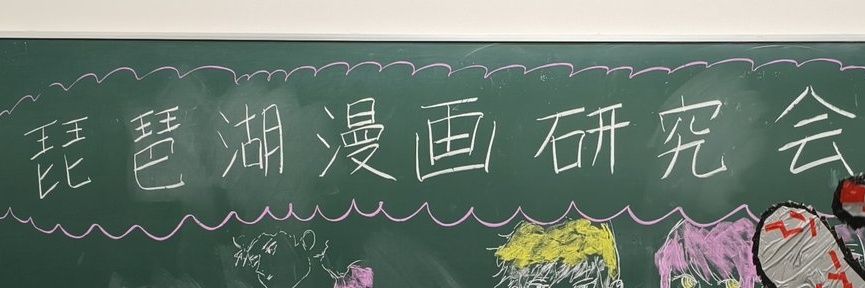 琵琶湖漫画研究会